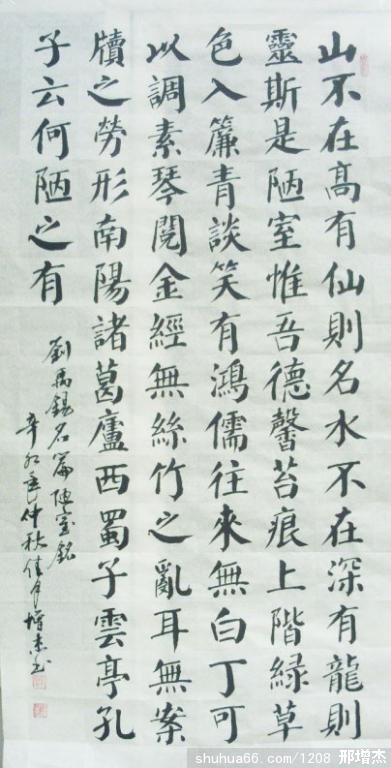 山不在高有仙則名水不在深有龍則
靈斯是陋室惟吾德馨苔痕上階緑草
色入簾青談笑有鴻儒往來無白丁可
以調素琴閲金經無絲竹之亂耳無案
牘之勞形南陽諸葛廬西蜀子雲亭孔
子云何陋之有
劉禹錫名篇陋室銘
辛卯仲秋佳月增杰书
shuhua66.com/1208 邢增杰